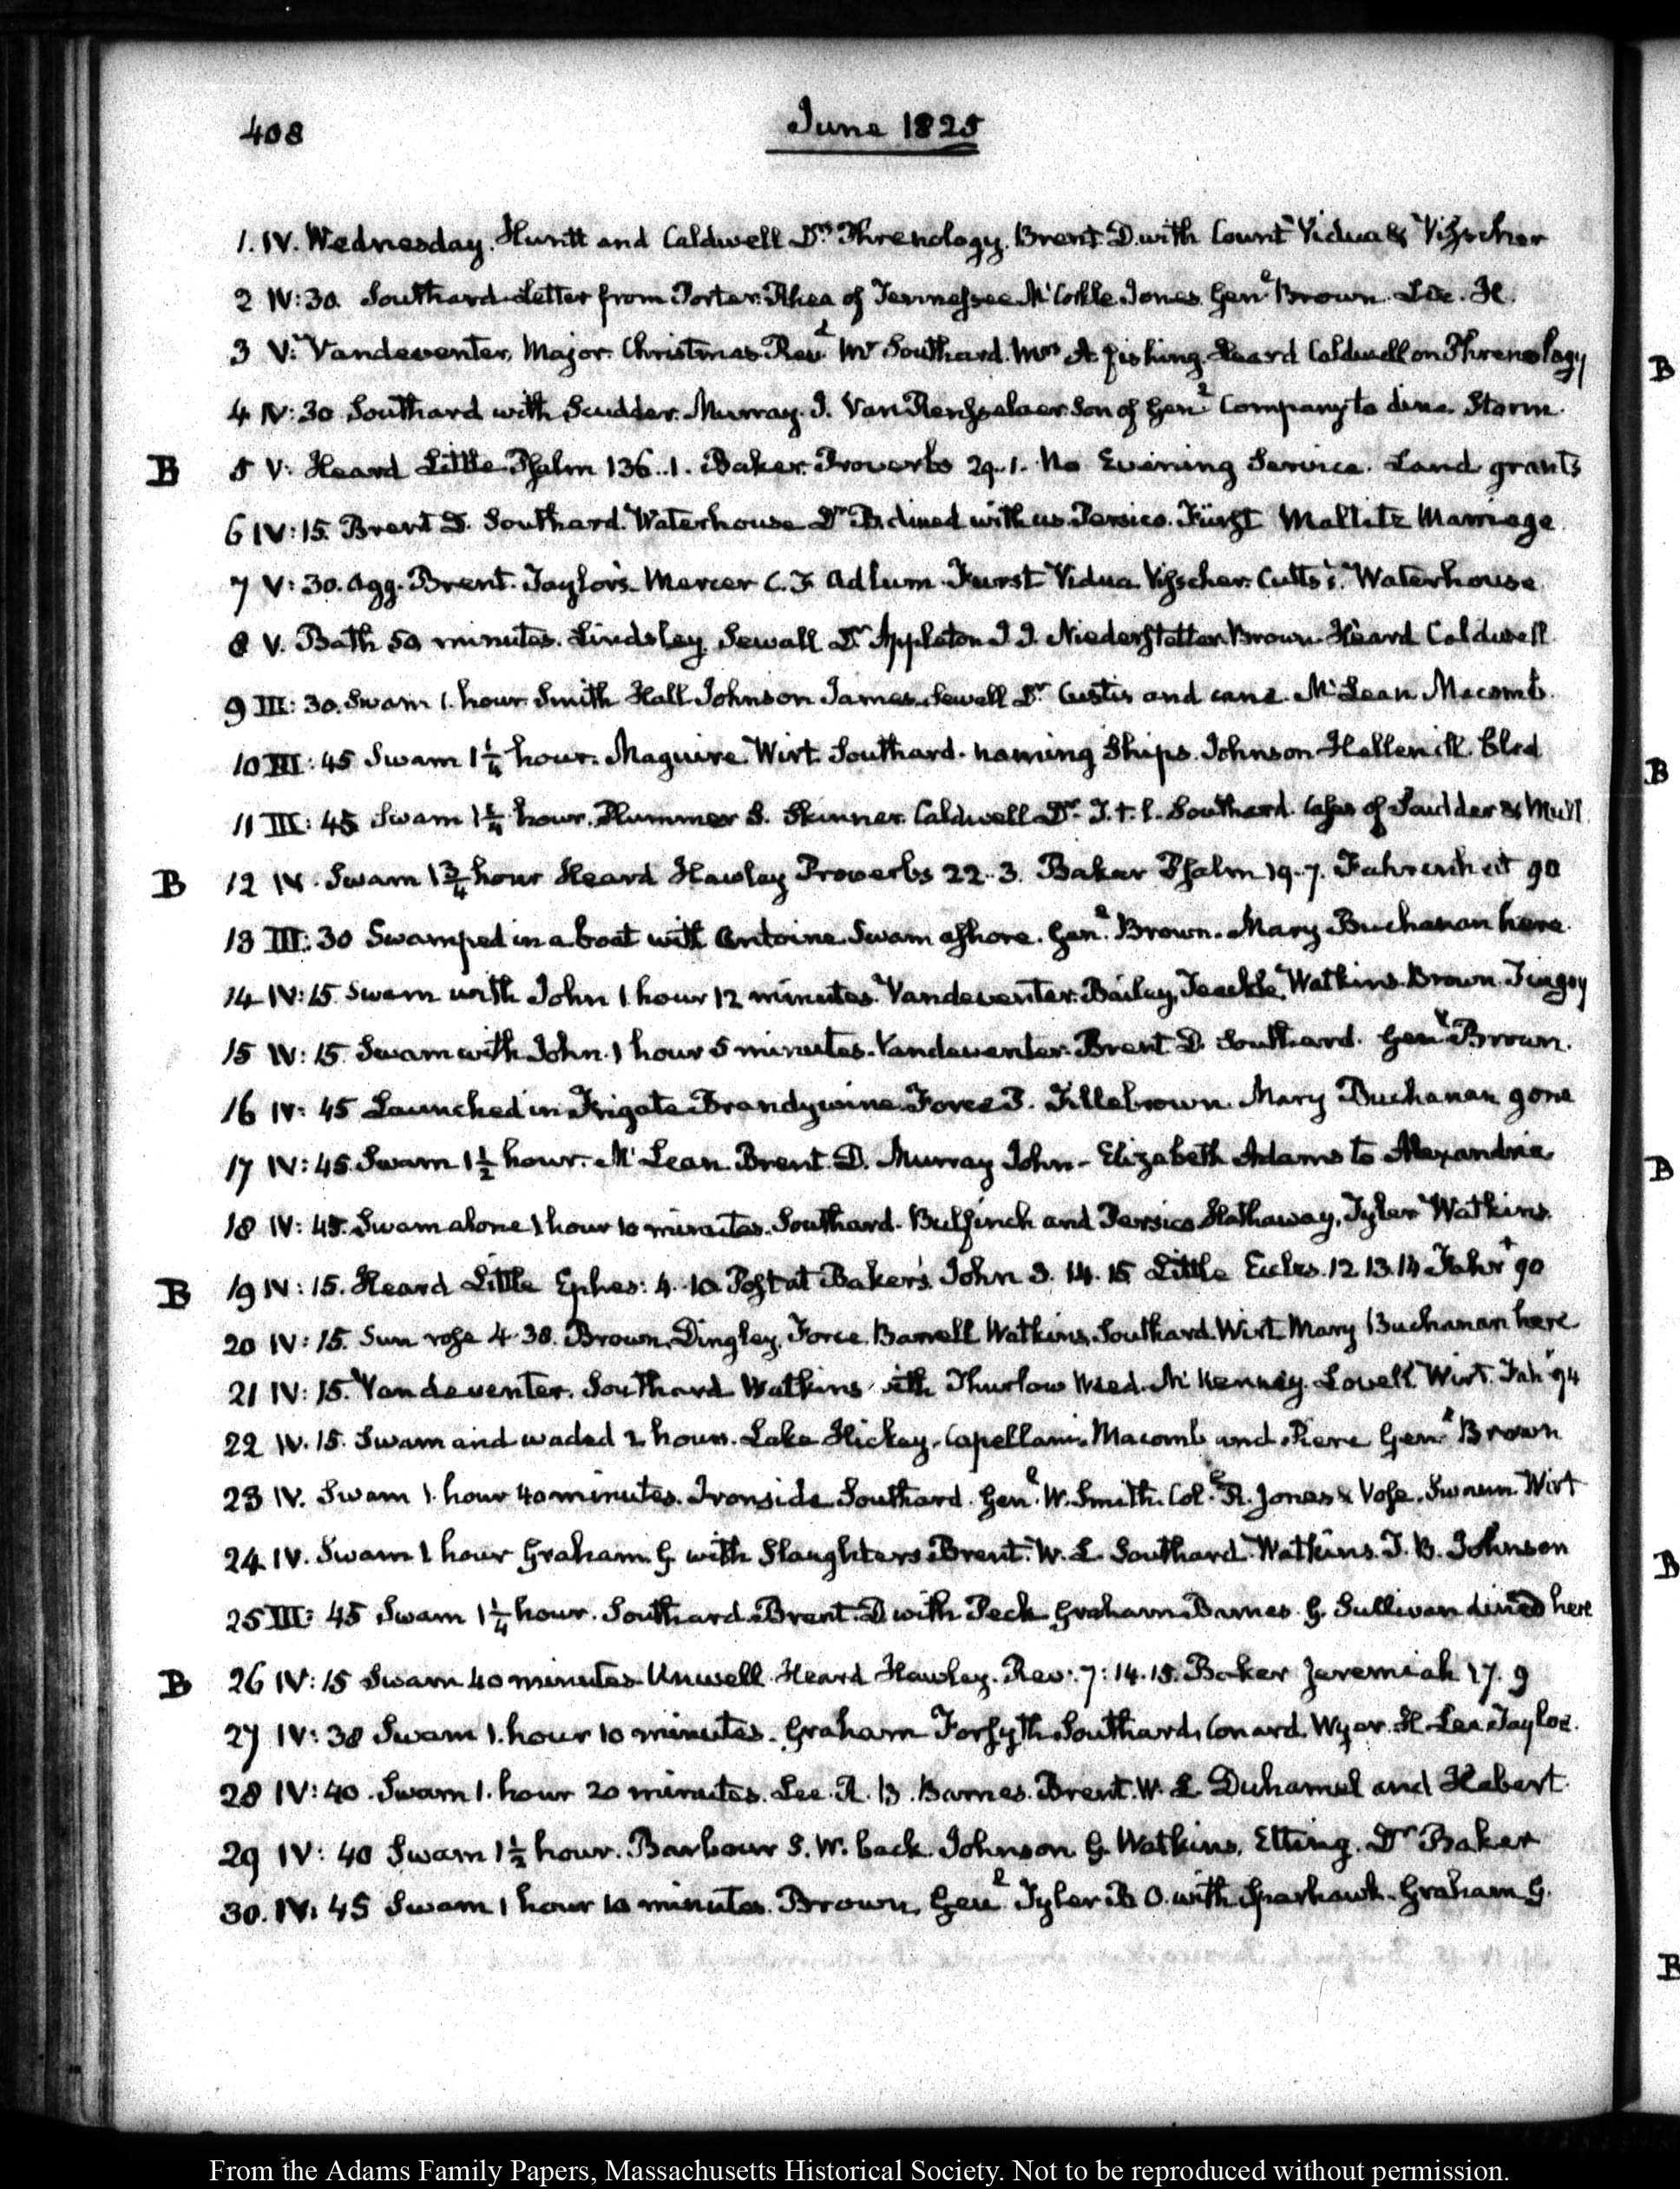 408
June 1825
1. IV. Wednesday. Huntt and Caldwell Drs. Phrenology. Brent. D. with Count Vidua & Visscher
2 IV:30. Southard Letter from Porter. Rhea of Tennessee Mc Corkle Jones Genl. Brown. Lee. H.
3 V: Vandeventer, Major. Christmas Revd. Mr Southard. Mrs A fishing Heard Caldwell on Phrenology
4 IV:30 Southard with Scudder. Murray. J. Van Rensselaer son of Genl. Company to dine. Storm.
B 5 V: Heard Little Psalm 136. 1. Baker. Proverbs 29. 1. No Evening Service. Land grants
6 IV:15. Brent D. Southard. Waterhouse Dr B. dined with us. Persico. Fürst Maltitz Marriage
7 V:30. Agg. Brent. Taylor's. Mercer C. F. Adlum. Furst Vidua Visscher. Cutts's. Waterhouse
8 V. Bath 50 minutes. Lindsley Sewall Dr Appleton J J. Niederstetter. Brown. Heard Caldwell
9 III: 30. Swam 1. hour Smith Hall Johnson James Sewell Dr. Custis and cane. Mc Lean Macomb.
10 III: 45 Swam 1¼ hour. Maguire Wirt Southard. naming Ships. Johnson Hellen ill. bled
11 III: 45 Swam 1¼ hour. Plummer S. Skinner Caldwell Dr. T. t. l. Southard. Cases of Scudder &
B 12 IV. Swam 1¾ hour Heard Hawley Proverbs 22. 3. Baker Psalm 19. 7. Fahrenheit 90
13 III:30 Swamped in a boat with Antoine. Swam ashore. Genl. Brown. Mary Buchanan here.
14 IV:15. Swam with John 1 hour 12 minutes. Vandeventer. Bailey, Teackle, Watkins. Brown. Tingey
15 IV: 15. Swam with John. 1 hour 5 minutes. Vandeventer. Brent D. Southard. Genl. Brown.
16 IV: 45 Launched in Frigate Brandywine. Force P. Fillebrown. Mary Buchanan gone
17 IV:45. Swam 1½ hour. Mc Lean. Brent. D. Murray John - Elizabeth Adams to Alexandria
18 IV: 45. Swam alone 1 hour 10 minutes. Southard. Bulfinch and Persico Hathaway, Tyler Watkins.
B 19 IV:15. Heard Little Ephes: 4. 10. Post at Baker's. John 3. 14. 15 Little Eccles. 12 13. 14 Fahrt 90
20 IV: 15. Sun rose 4. 38. Brown, Dingley. Force. Barrell Watkins, Southard. Wirt Mary Buchanan here
21 IV: 15. Vandeventer. Southard Watkins with Thurlow Weed. Mc Kenney. Lovell. Wirt. Fahr 94
22 IV. 15. Swam and waded 2 hours. Lake Hickey, Capellano. Macomb and Genl. Brown
23 IV. Swam 1. hour 40 minutes. Ironside Southard. Genl. W. Smith. Col. R. Jones & Vose. Swam. Wirt
24 IV. Swam 1 hour Graham. G with Slaughters. Brent. W. L. Southard. Watkins. T. B. Johnson
25 III: 45 Swam 1¼ hour. Southard. Brent. D with Peck Graham Barnes. G. Sullivan dined here
B 26 IV:15 Swam 40 minutes. Unwell. Heard Hawley. Rev: 7: 14. 15. Baker Jeremiah 17. 9
27 IV: 38 Swam 1. hour 10 minutes. Graham Forsyth, Southard, Conard. Wyer. H. Lee Tayloe.
28 IV:40. Swam 1. hour 20 minutes. Lee. R. B. Barnes. Brent. W. L. Duhamel and Hebert.
29 IV: 40 Swam 1½ hour. Barbour S. W. back. Johnson G. Watkins, Elting. Dr Baker
30. IV: 45 Swam 1 hour 10 minutes. Brown, Genl. Tyler B O. with Sparhawk. Graham G.
B
B
B
B
B
From the Adams Family Papers, Massachusetts Historical Society. Not to be reproduced without permission.